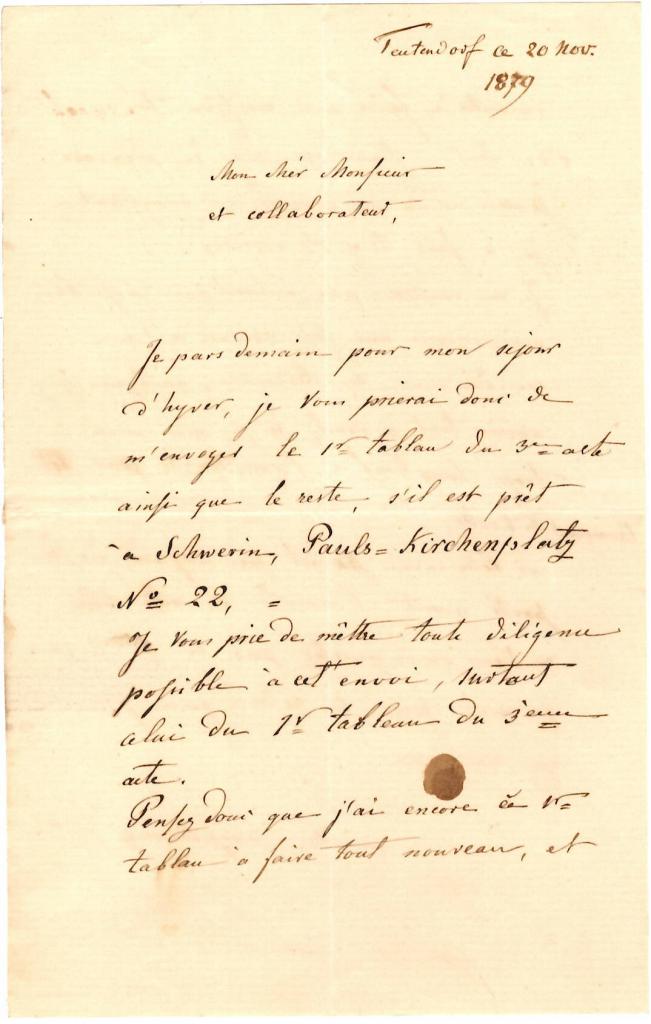 Teutendorf ce 20 Nov.
1879
Mon chér Monsieur
et collaborateur,
Je pars demain pour mon séjour
d'hyver, je vous prierai donc de
m'envoyer le 1r tablau du 3me acte
ainsi que le reste, s'il est prêt
à Schwerin, Pauls=Kirchenplatz
No 22, =
Je vous prie de mêttre toute diligence
possible à cet envoi, surtout
celui du 1r tableau du 3eme
acte.
Pensez donc que j'ai encore ce 1r
tablau à faire tout nouveau, et